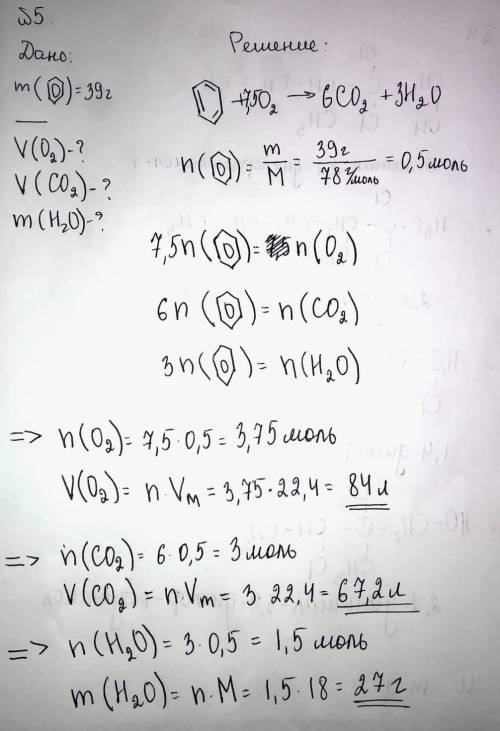 №5.
Дано:
Решение:
m(⌬)=39г
V(O₂)-?
V(CO₂)-?
m(H₂O)-?
⌬ +7,5O₂ → 6CO₂ +3H₂O
n(⌬)= m/M = 39г/78 г/моль = 0,5 моль
7,5n(⌬)= n(O₂)
6n(⌬)= n(CO₂)
3n(⌬)= n(H₂O)
=> n(O₂)= 7,5·0,5= 3,75 моль
V(O₂)= n·Vм = 3,75·22,4= 84 л
=> n(CO₂)= 6·0,5= 3 моль
V(CO₂)= n·Vm= 3·22,4= 67,2 л
=> n(H₂O)= 3·0,5= 1,5 моль
m(H₂O)= n·M= 1,5·18= 27 г